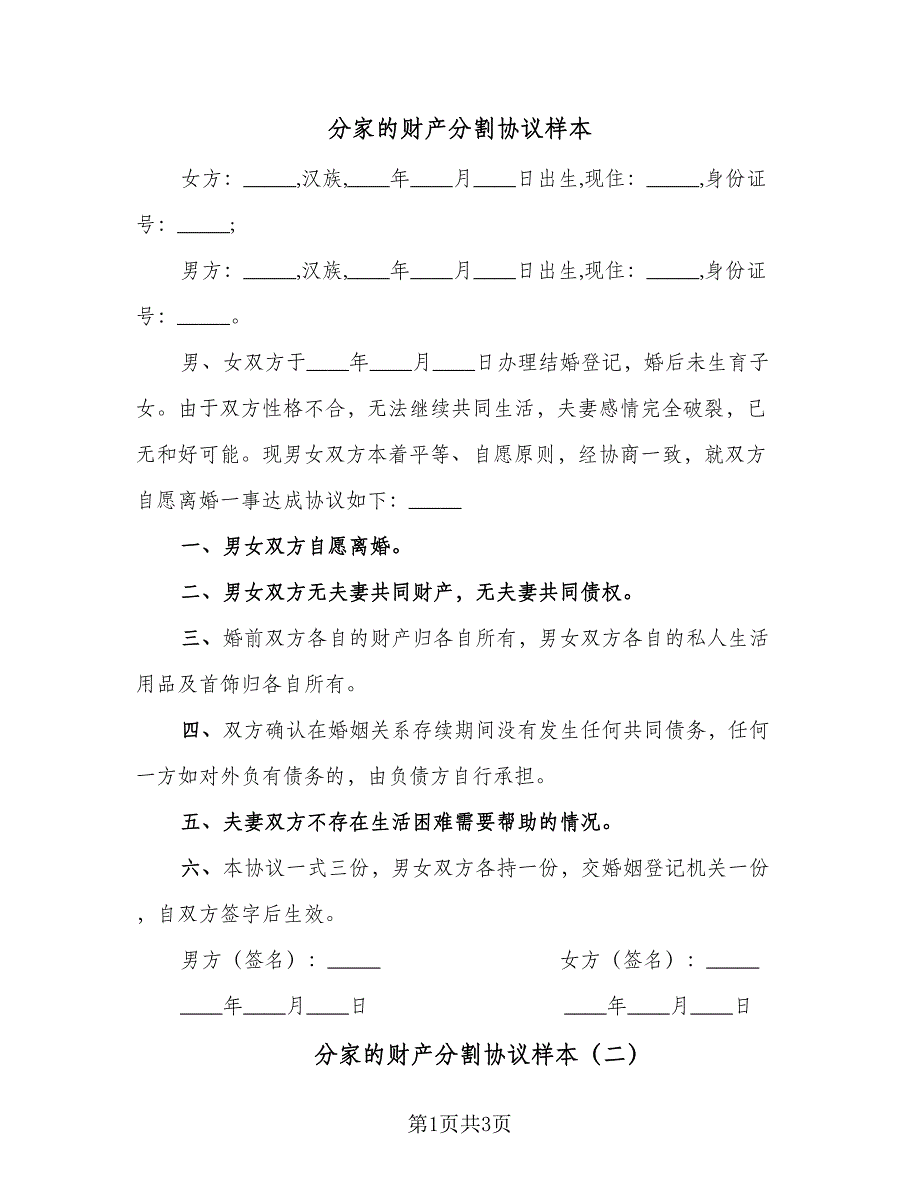 分家的财产分割协议样本
女方：_____,汉族,____年____月____日出生,现住：_____,身份证
号：_____;
男方：_____,汉族,____年____月____日出生,现住：_____,身份证
号：_____。
男、女双方于____年____月____日办理结婚登记，婚后未生育子
女。由于双方性格不合，无法继续共同生活，夫妻感情完全破裂，已
无和好可能。现男女双方本着平等、自愿原则，经协商一致，就双方
自愿离婚一事达成协议如下：_____
一、男女双方自愿离婚。
二、男女双方无夫妻共同财产，无夫妻共同债权。
三、婚前双方各自的财产归各自所有，男女双方各自的私人生活
用品及首饰归各自所有。
四、双方确认在婚姻关系存续期间没有发生任何共同债务，任何
一方如对外负有债务的，由负债方自行承担。
五、夫妻双方不存在生活困难需要帮助的情况。
六、本协议一式三份，男女双方各持一份，交婚姻登记机关一份
，自双方签字后生效。
男方（签名）：_____ 女方（签名）：_____
____年____月____日 ____年____月____日
分家的财产分割协议样本（二）
第1页共3页